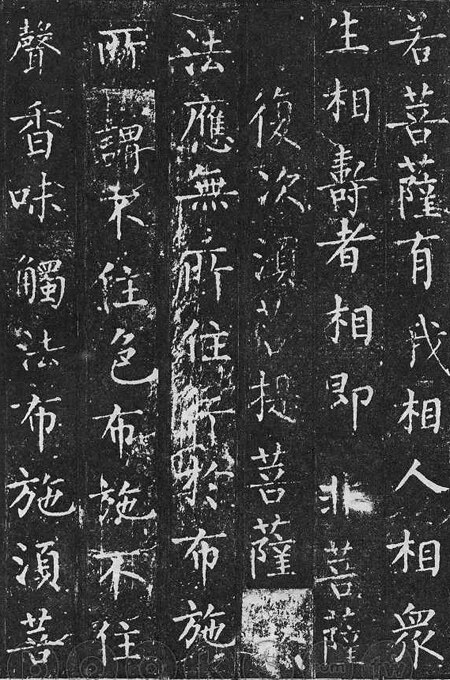 若菩薩有我相人相眾
生相壽者相即非菩薩
復次須菩提菩薩
法應無所住行於布施
所謂不住色布施不住
聲香味觸法布施須菩